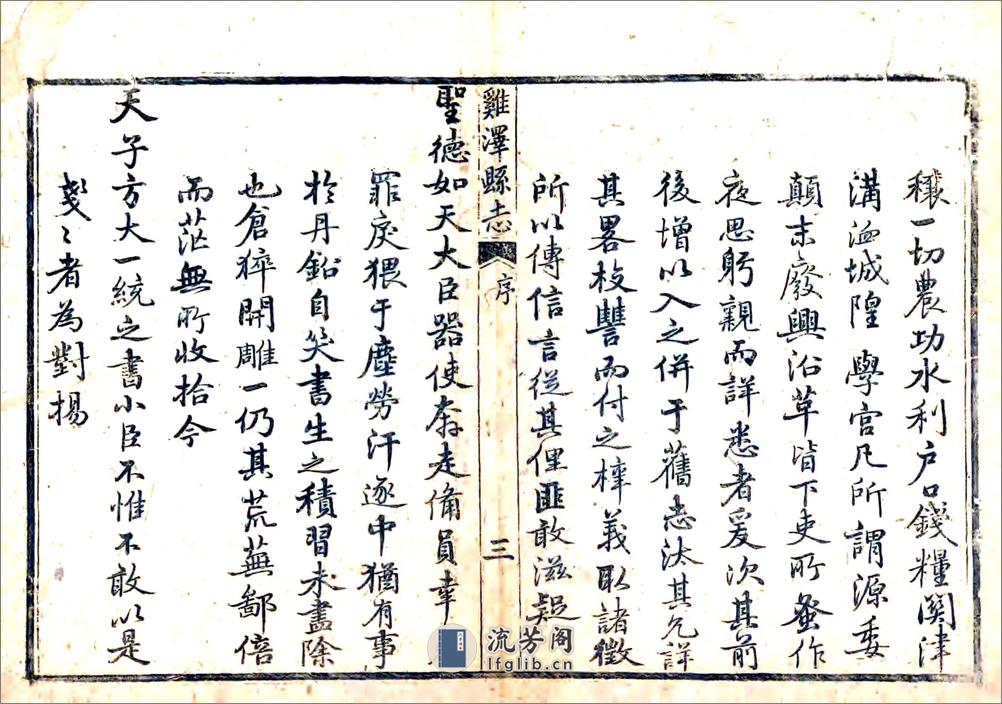 穰一切農功水利户口錢糧関津
溝洫城隍學宮凡所謂源委
顛末廢興沿革皆下吏所蚤作
夜思躬親而詳悉者爰次其前
後增以入之併于舊志汰其冗詳
其畧校讐而付之梓義取諸徵
所以傳信言從其俚匪敢滋疑
雞澤縣志 序 三
聖德如天大臣器使奔走備員幸
罪戾猥于塵勞汗逐中猶有事
於丹鉛自笑書生之積習未盡除
也倉猝開雕一仍其荒蕪鄙倍
而茫無所收拾今
天子方大一統之書小臣不惟不敢以是
戔〻者為對揚
流芳阁
lfglib.cn